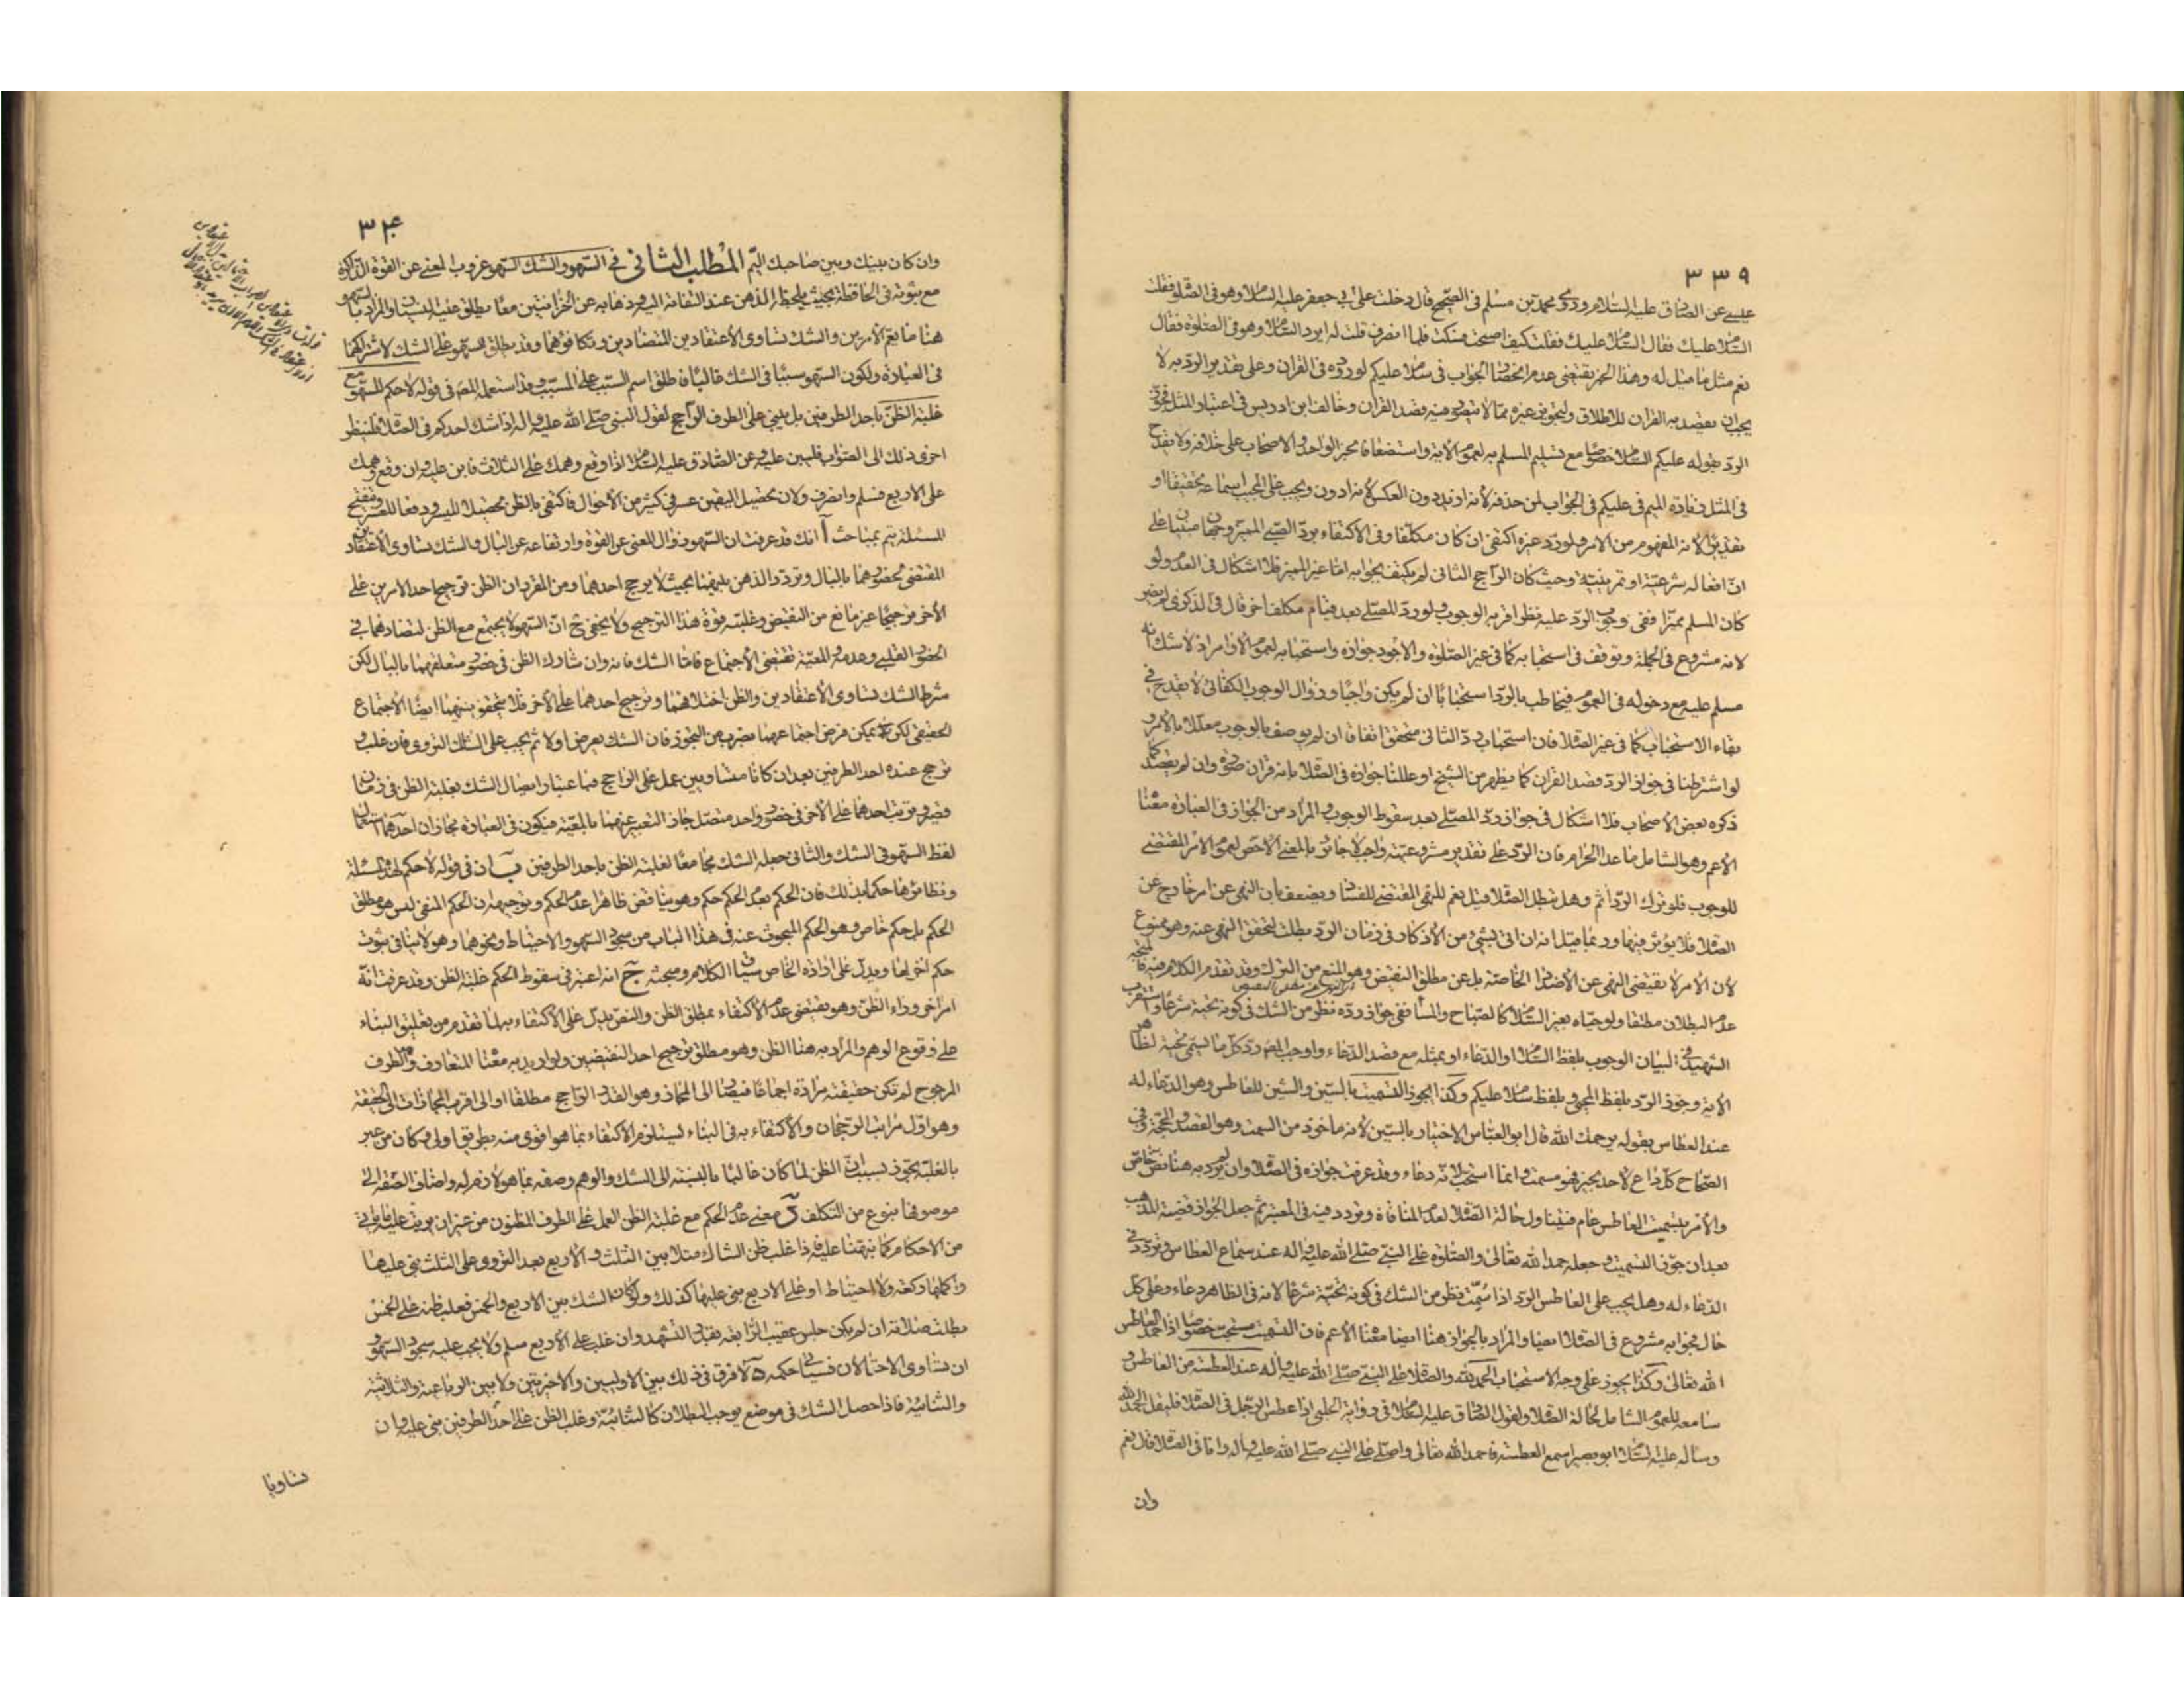 ٣٣٩
عيسى عن الصادق عليه السلام وروى محمد بن مسلم في الصحيح قال دخلت على ابي جعفر عليه السلام وهو في الصلوة فقلت
السلام عليك فقال السلام عليك فقلت كيف اصبحت فسكت فلما انصرف قلت له ايرد السلام وهو في الصلوة فقال
نعم مثل ما قيل له وهذا الخبر يقتضى عدم انحصار الجواب في سلام عليكم لوروده في القران وعلى تقدير الرد به لا
يجب ان يقصد به القران للاطلاق ولتجويز غيره مما لا يتصور فيه قصد القران وخالف ابن ادريس في اعتبار المثل فجوز
الرد بقوله عليكم السلام خصوصا مع تسليم المسلم به لعموم الاية واستضعافا بخبر الواحد والاصحاب على خلافه ولا يقدح
في المثل زيادة الميم في عليكم في الجواب لمن حذفه لانه ازيد دون العكس لانه ادون ويجب على المجيب اسماعه تحقيقا او
تقديرا لانه المفهوم من الامر ولو رد غيره اكتفى ان كان مكلفا وفي الاكتفاء برد الصبى المميز وجهان مبنيان على
ان افعاله شرعية او تمرينية وحيث كان الراجح الثانى لم يكتف بجوابه اما غير المميز فلا اشكال في العدم ولو
كان المسلم مميزا ففى وجوب الرد عليه نظر اقربه الوجوب ولو رد المصلى بعد قيام مكلف اخر قال في الذكرى لم يضر
لانه مشروع في الجملة وتوقف في استحبابه كما في غير الصلوة والاجود جوازه واستحبابه لعموم الاوامر اذ لا شك انه
مسلم عليه مع دخوله في العموم فيخاطب بالرد استحبابا ان لم يكن واجبا وزوال الوجوب الكفائى لا يقدح في
بقاء الاستحباب كما في غير الصلاة فان استحباب رد الثانى متحقق اتفاقا ان لم يوصف بالوجوب معللا بالامر و
لو اشترطنا في جواز الرد قصد القران كما يظهر من الشيخ او عللنا جوازه في الصلاة بانه قران صورة وان لم يقصد كما
ذكره بعض الاصحاب فلا اشكال في جواز رد المصلى بعد سقوط الوجوب والمراد من الجواز في العبارة معناه
الاعم وهو الشامل ما عدا الحرام فان الرد على تقدير مشروعيته واجب لا جائز بالمعنى الاخص لعموم الامر المقتضى
للوجوب فلو ترك الرد اثم وهل تبطل الصلاة قيل نعم للنهى المقتضى للفساد ويضعف بان النهى عن امر خارج عن
الصلاة فلا يؤثر فيها وربما قيل انه ان اتى بشىء من الاذكار في زمان الرد بطلت لتحقق النهى عنه وهو ممنوع
لان الامر لا يقتضى النهى عن الاضداد الخاصة بل عن مطلق النقيض وهو المنع من الترك وقد تقدم الكلام فيه فالمتجه
عدم البطلان مطلقا ولو حياه بغير السلام كالصباح والمساء ففى جواز رده نظر من الشك في كونه تحية شرعا واستقرب
الشهيد في البيان الوجوب بلفظ السلام او الدعاء او بمثله مع قصد الدعاء واوجب المص رد كل ما يسمى تحية لظاهر
الاية وجوز الرد بلفظ المحيى وبلفظ سلام عليكم وكذا يجوز التسميت بالسين والشين للعاطس وهو الدعاء له
عند العطاس بقوله يرحمك الله قال ابو العباس الاختيار بالسين لانه ماخوذ من السمت وهو القصد والمحجة وفي
الصحاح كل داع لاحد بخير فهو مسمت وانما استحب لانه دعاء وقد عرفت جوازه في الصلاة وان لم يرد به هنا نص خاص
والامر بتسميت العاطس عام فيتناول حالة الصلاة لعدم المنافاة وتردد فيه في المعتبر ثم جعل الجواز قضية للمذهب
بعد ان جوز التسميت وجعله حمد الله تعالى والصلوة على النبى صلى الله عليه واله عند سماع العطاس وتردد في
الدعاء له وهل يجب على العاطس الرد اذا سمت نظر من الشك في كونه تحية شرعا لانه في الظاهر دعاء وعلى كل
حال فجوابه مشروع في الصلاة ايضا والمراد بالجواز هنا ايضا معناه الاعم فان التسميت مستحب خصوصا اذا حمد العاطس
الله تعالى وكذا يجوز على وجه الاستحباب الحمد لله والصلاة على النبى صلى الله عليه واله عند العطسة من العاطس و
سامعه للعموم الشامل لحالة الصلاة ولقول الصادق عليه السلام في رواية الحلبى اذا عطس الرجل في الصلاة فليقل الحمد لله
وساله عليه السلام ابو بصير اسمع العطسة فاحمد الله تعالى واصلى على النبى صلى الله عليه واله وانا في الصلاة قال نعم
وان
٣٤٠
وان كان بينك وبين صاحبك اليم المطلب الثانى في السهو والشك السهو عزوب المعنى عن القوة الذاكرة
مع ثبوته في الحافظة بحيث يلحظه الذهن عند التفاته اليه وذهابه عن الخزانتين معا يطلق عليه النسيان والمراد بالسهو
هنا ما يعم الامرين والشك تساوى الاعتقادين المتضادين وتكافؤهما وقد يطلق السهو على الشك لاشتراكهما
في العبارة ولكون السهو سببا في الشك غالبا فاطلق اسم السبب على المسبب وقد استعمله المص في قوله لا حكم للسهو مع
غلبة الظن باحد الطرفين بل يبنى على الطرف الراجح لقول النبى صلى الله عليه واله اذا شك احدكم في الصلاة فلينظر
احرى ذلك الى الصواب فليبن عليه وعن الصادق عليه السلام اذا وقع وهمك على الثلاث فابن عليه وان وقع وهمك
على الاربع فسلم وانصرف ولان تحصيل اليقين عسر في كثير من الاحوال فاكتفى بالظن تحصيلا لليسر ودفعا للعسر وتنقيح
المسئلة يتم بمباحث آ انك قد عرفت ان السهو زوال المعنى عن القوة وارتفاعه عن البال والشك تساوى الاعتقادين
المقتضى لحضورهما بالبال وتردد الذهن بينهما بحيث لا يرجح احدهما ومن المقرر ان الظن ترجيح احد الامرين على
الاخر ترجيحا غير مانع من النقيض وغلبته قوة هذا الترجيح ولا يخفى ح ان السهو لا يجتمع مع الظن لتضادهما في
الحضور القلبى وعدمه والمعية تقتضى الاجتماع فاما الشك فانه وان شارك الظن في حضور متعلقهما بالبال لكن
شرط الشك تساوى الاعتقادين والظن اختلافهما وترجيح احدهما على الاخر فلا يتحقق بينهما ايضا الاجتماع
الحقيقى لكنه يمكن فرض اجتماعهما بضرب من التجوز فان الشك يعرض اولا ثم يجب على الشاك التروى فان غلب و
ترجح عنده احد الطرفين بعد ان كانا متساويين عمل على الراجح فباعتبار اتصال الشك بغلبة الظن في زمان
قصير وترتب احدهما على الاخر في حضور واحد متصل جاز التعبير عنهما بالمعية فيكون في العبارة مجازان احدهما استعمال
لفظ السهو في الشك والثانى جعله الشك مجامعا لغلبة الظن باحد الطرفين ب ان في قوله لا حكم لهذه المسئلة
ونظائرها حكما بذلك فان الحكم بعدم الحكم حكم وهو يناقض ظاهرا عدم الحكم وتوجيهه ان الحكم المنفى ليس هو مطلق
الحكم بل حكم خاص وهو الحكم المبحوث عنه في هذا الباب من سجود السهو والاحتياط ونحوهما وهو لا ينافى ثبوت
حكم اخر لها ويدل على ارادة الخاص سياق الكلام ومبحثه ج انه اعتبر في سقوط الحكم غلبة الظن وقد عرفت انه
امر اخر وراء الظن وهو يقتضى عدم الاكتفاء بمطلق الظن والنص يدل على الاكتفاء به لما تقدم من تعليق البناء
على وقوع الوهم والمراد به هنا الظن وهو مطلق ترجيح احد النقيضين ولو اريد به معناه المتعارف وهو الطرف
المرجوح لم تكن حقيقته مرادة اجماعا فيصار الى المجاز وهو القدر الراجح مطلقا او الى اقرب المجازات الى الحقيقة
وهو اول مراتب الرجحان والاكتفاء به في البناء يستلزم الاكتفاء بما هو اقوى منه بطريق اولى وكان من عبر
بالغلبة تجوز بسبب ان الظن لما كان غالبا بالنسبة الى الشك والوهم وصفه بما هو لازم له واضاف الصفة الى
موصوفها بنوع من التكلف د معنى عدم الحكم مع غلبة الظن العمل على الطرف المظنون من غير ان يترتب عليه ما ياتى
من الاحكام كما نبهنا عليه فاذا غلب ظن الشاك مثلا بين الثلث والاربع بعد التروى على الثلث بنى عليها
واكملها ركعة ولا احتياط او على الاربع بنى عليها كذلك ولو كان الشك بين الاربع والخمس فغلب ظنه على الخمس
بطلت صلاته ان لم يكن جلس عقيب الرابعة بقدر التشهد وان غلب على الاربع سلم ولا يجب عليه سجود السهو و
ان تساوى الاحتمالان فسياتى حكمه ه لا فرق في ذلك بين الاوليين والاخيرتين ولا بين الرباعية والثلاثية
والثنائية فاذا حصل الشك في موضع يوجب البطلان كالثنائية وغلب الظن على احد الطرفين بنى عليه وان
تساويا